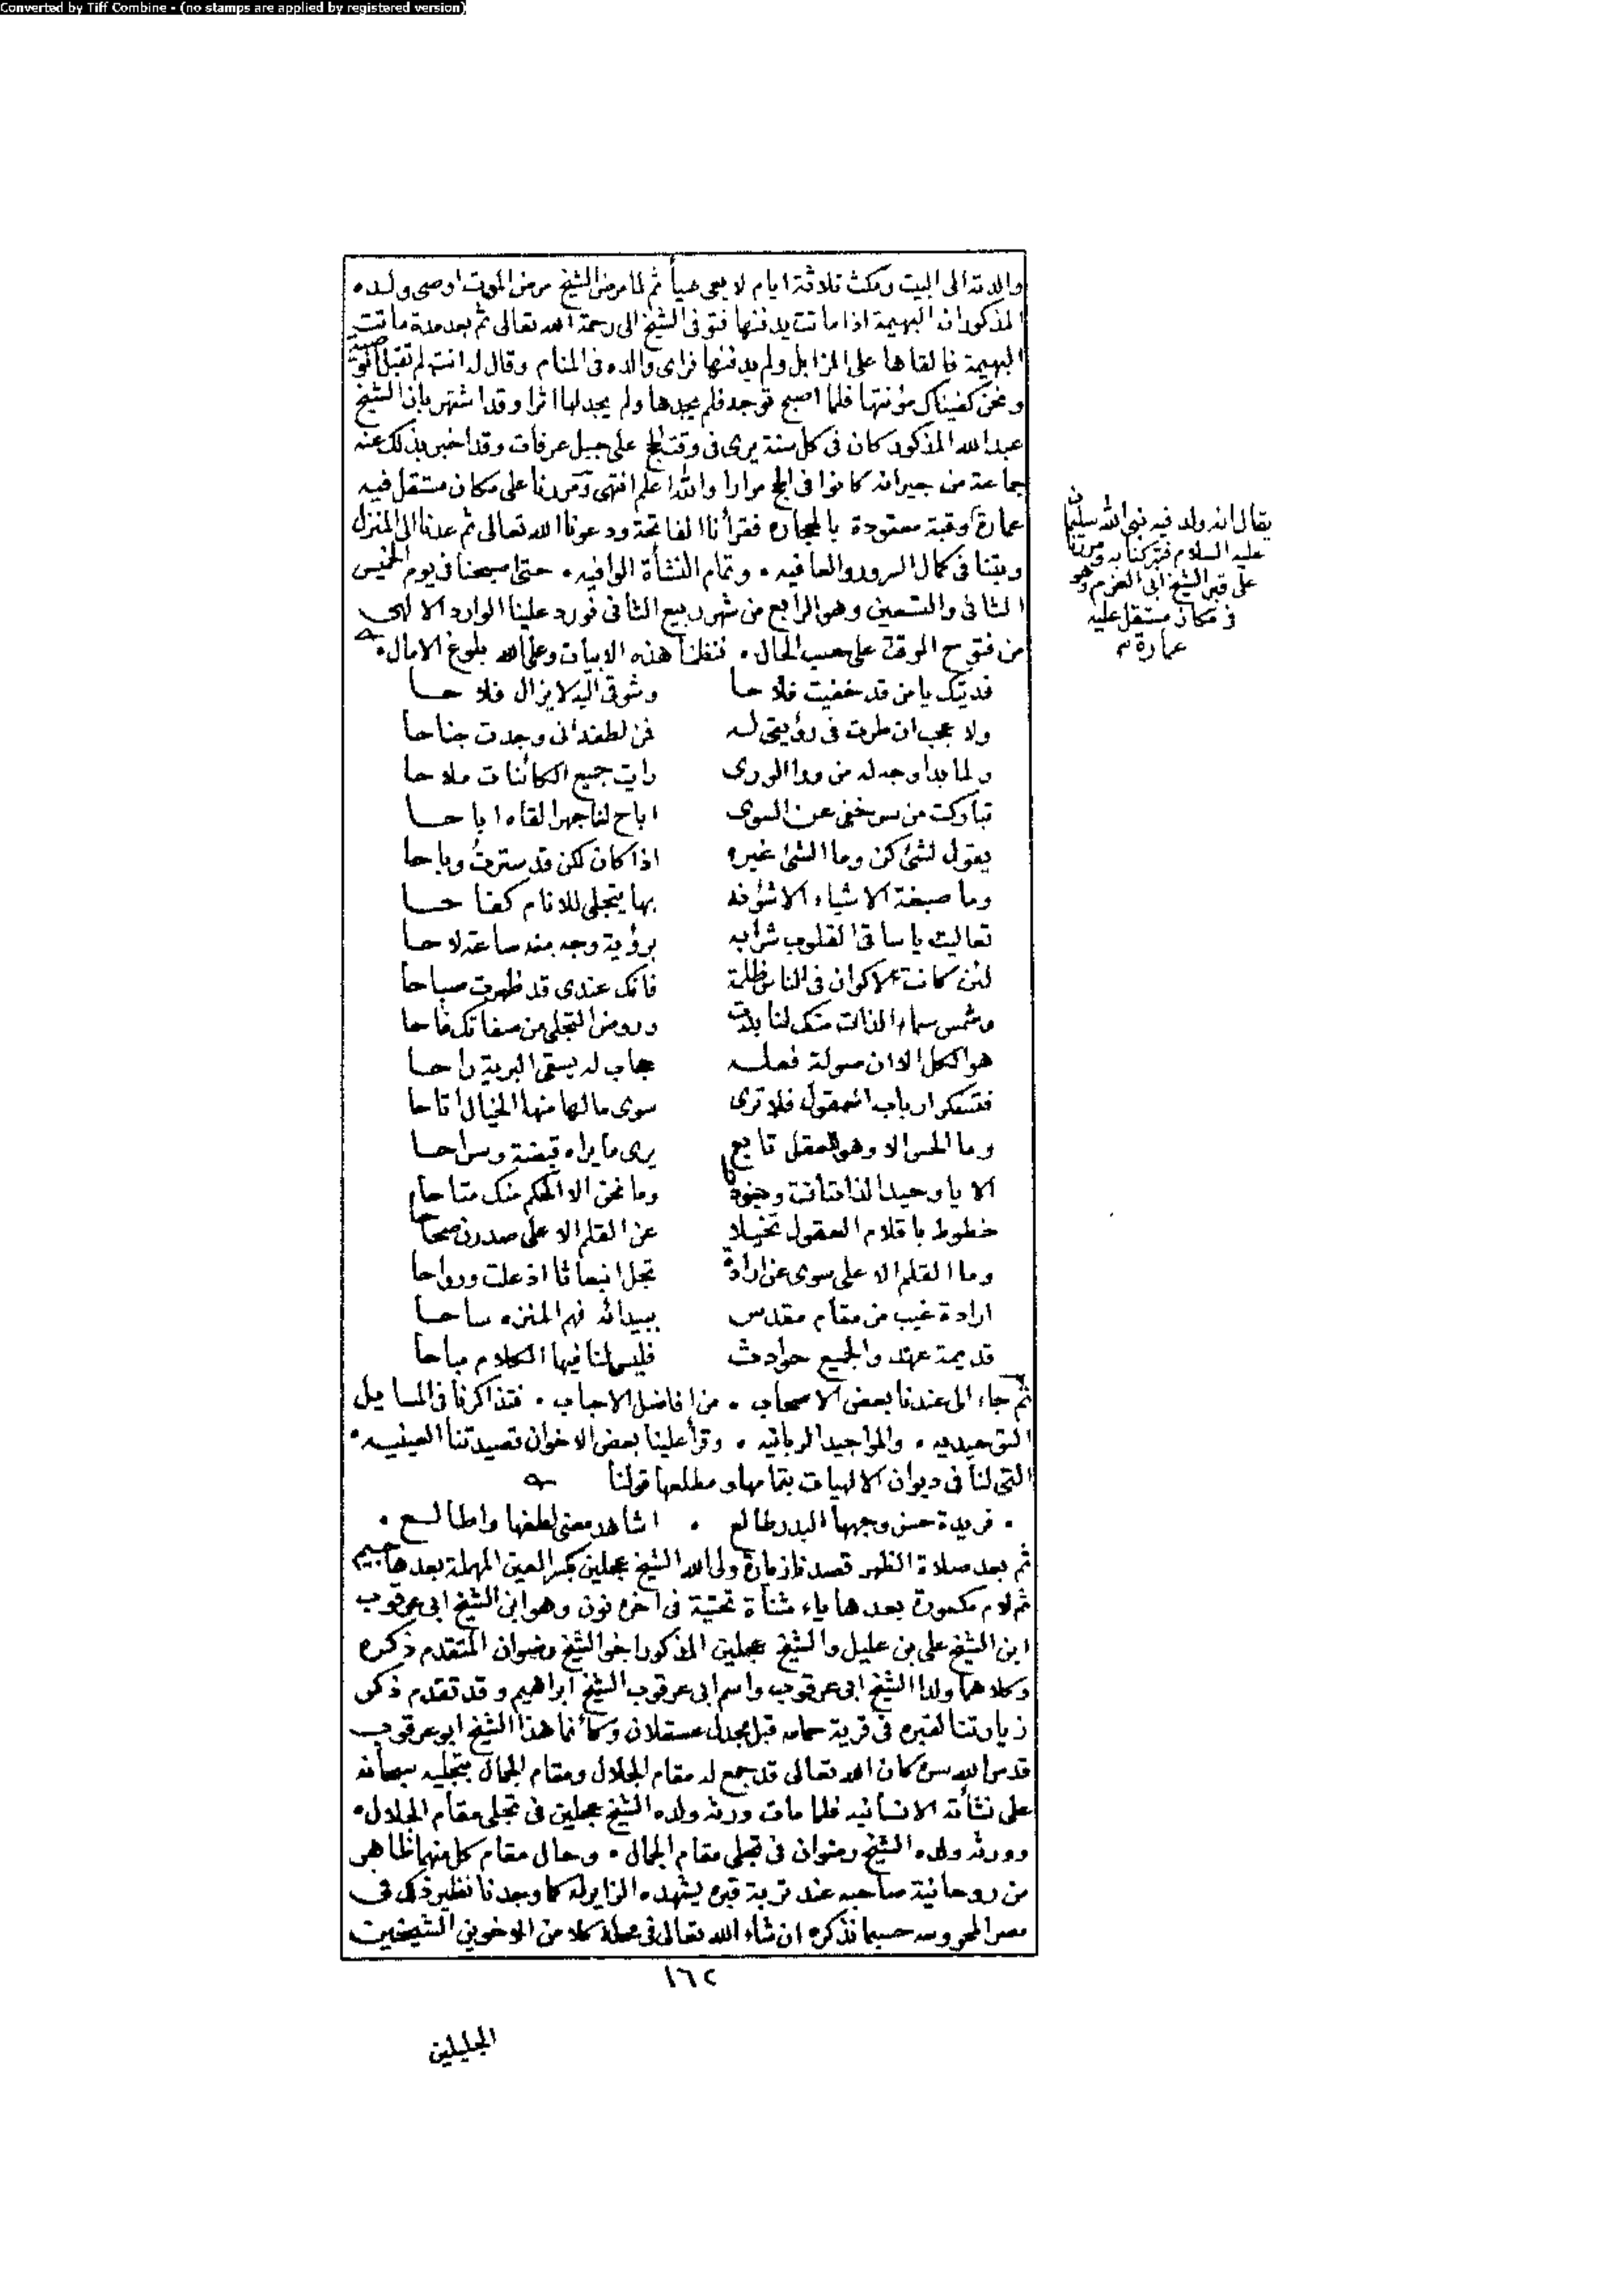 Converted by Tiff Combine - (no stamps are applied by registered version)
والدته الى البيت ومكث ثلاثة ايام لا يعى شيأ ثم لما مرض الشيخ مرض الموت اوصى ولده
المذكور ان البهيمة اذا ماتت يدفنها فتوفى الشيخ الى رحمة الله تعالى ثم بعد مدة ماتت
البهيمة فالقاها على المزابل ولم يدفنها فراى والده فى المنام وقال له انت لم تقبل الوصية
ونحن كفيناك مؤنتها فلما اصبح توجه فلم يجدها ولم يجد لها اثرا وقد اشتهر بان الشيخ
عبد الله المذكور كان فى كل سنة يرى فى وقت الحج على جبل عرفات وقد اخبر بذلك عنه
جماعة من جيرانه كانوا فى الحج مرارا والله اعلم انتهى ومررنا على مكان مستقل فيه
عمارة وقبة معقودة بالحجاره فقرأنا الفاتحة ودعونا الله تعالى ثم عدنا الى المنزل
وبتنا فى كمال السرور والعافيه . وتمام النشأة الوافيه . حتى اصبحنا فى يوم الخميس
الثانى والتسعين وهو الرابع من شهر ربيع الثانى فورد علينا الوارد الالهى
من فتوح الوقت على حسب الحال . فنظمنا هذه الابيات وعلى الله بلوغ الامال .
يقال انه ولد فيه نبى الله سليمان
عليه السلام فتبركنا به ومررنا
على قبر الشيخ ابى العزم وهو
فى مكان مستقل عليه
عمارة
فديتك يا من قد خفيت فلاحا وشوقى اليه لا يزال فلاحا
ولا عجب ان طرت فى رؤيتى له فمن لطفه انى وجدت جناحا
ولما بدا وجه له من ورا الورى رايت جميع الكائنات ملاحا
تباركت من سر خفى عن السوى اباح لنا جهرا لقاه اباحا
يقول لشئ كن وما الشئ غيره اذا كان لكن قد سترت وباحا
وما صبغة الاشياء الا شؤنه بها يتجلى للانام كفاحا
تعاليت يا ساقى القلوب شرابه برؤية وجه منه ساعة لاحا
لئن كانت الاكوان فى الناس ظلمة فانك عندى قد ظهرت صباحا
وشمس سماء الذات منك لنا بدت وروض التجلى من صفاتك فاحا
هو الكل الا ان صولة فعله حجاب له يسقى البرية راحا
فتسكر ارباب العقول فلا ترى سوى ما لها منها الخيال اتاحا
وما الحس الا وهو للعقل تابع يرى ما يراه قبضة وسراحا
الا يا وحيد الذات انت وجودنا وما نحن الا الحكم منك متاحا
خطوط باقلام العقول تخيلا عن القلم الاعلى صدرن صحاحا
وما القلم الاعلى سوى عن ارادة تجل انبعاثا اذ علت ورواحا
ارادة غيب من مقام مقدس ببيدائه فهم المنزه ساحا
قديمة عهد والجميع حوادث فليس لنا فيها الكلام مباحا
ثم جاء الى عندنا بعض الاصحاب . من افاضل الاحباب . فتذاكرنا فى المسايل
التوحيديه . والمواجيد الربانيه . وقرأ علينا بعض الاخوان قصيدتنا العينيه .
التى لنا فى ديوان الالهيات بتمامها ومطلعها قولنا
. فريدة حسن وجهها البدر طالع . اشاهد معنى لطفها واطالع .
ثم بعد صلاة الظهر قصدنا زيارة ولى الله الشيخ عجلين بكسر العين المهملة بعدها جيم
ثم لام مكسورة بعدها ياء مثناة تحتية فى اخره نون وهو ابن الشيخ ابى عرقوب
ابن الشيخ على بن عليل والشيخ عجلين المذكور اخو الشيخ رضوان المتقدم ذكره
وكلاهما ولدا الشيخ ابى عرقوب واسم ابى عرقوب الشيخ ابراهيم وقد تقدم ذكر
زيارتنا لقبره فى قرية حمامه قبل مجدل عسقلان وكأنما هذا الشيخ ابو عرقوب
قدس الله سره كان الله تعالى قد جمع له مقام الجلال ومقام الجمال بتجليه سبحانه
على نشأته الانسانيه فلما مات ورثه ولده الشيخ عجلين فى تجلى مقام الجلال .
وورثه ولده الشيخ رضوان فى تجلى مقام الجمال . وحال مقام كل منهما ظاهر
من روحانية صاحبه عند تربة قبره يشهده الزاير له كما وجدنا نظير ذلك فى
مصر المحروسه حسبما نذكره ان شاء الله تعالى فى محله كلا من الاخوين الشيخين
١٦٢
الجليلين